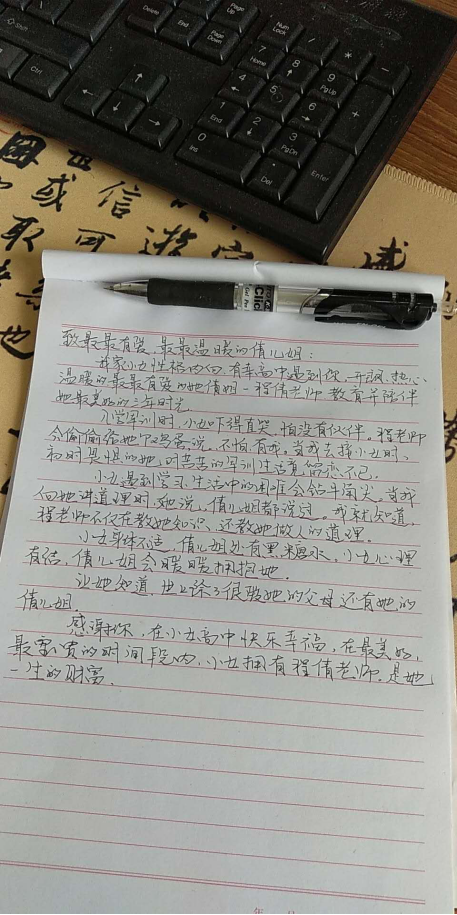 Shift
Ctrl
Delete
End
Page
Up
Page
Down
Num
Lock
/
*
-
7
Home
8
9
PgUp
+
4
5
6
1
End
2
3
PgDn
0
Ins
.
Del
Enter
或信
取可遊
感
也
敬最最有爱、最最温暖的倩儿姐:
我家小女性格内向,有幸高中遇到你,开朗、热心、
温暖的最最有爱的她倩姐—程倩老师 教育并陪伴
她最美好的三年时光
入学军训时,小女吓得直哭,怕没有伙伴。程老师
会偷偷在她 说,不怕有我。当我去接小女时,
初时哭惧的她,对苦苦的军训生活竟留恋不已.
小女遇到学习、生活中的困难会钻牛角尖。当我
向她讲道理时,她说,倩儿姐都说过。我就知道,
程老师不仅在教她知识、还教她做人的道理.
小女身体不适,倩儿姐办有黑糖水,小女心理
有结,倩儿姐会暖暖拥抱她.
让她知道,世上除了很爱她的父母还有她的
倩儿姐.
感谢你,在小女高中快乐幸福,在最美好,
最宝贵的时间段内,小女拥有程倩老师.是她
一生的财富.
年 月